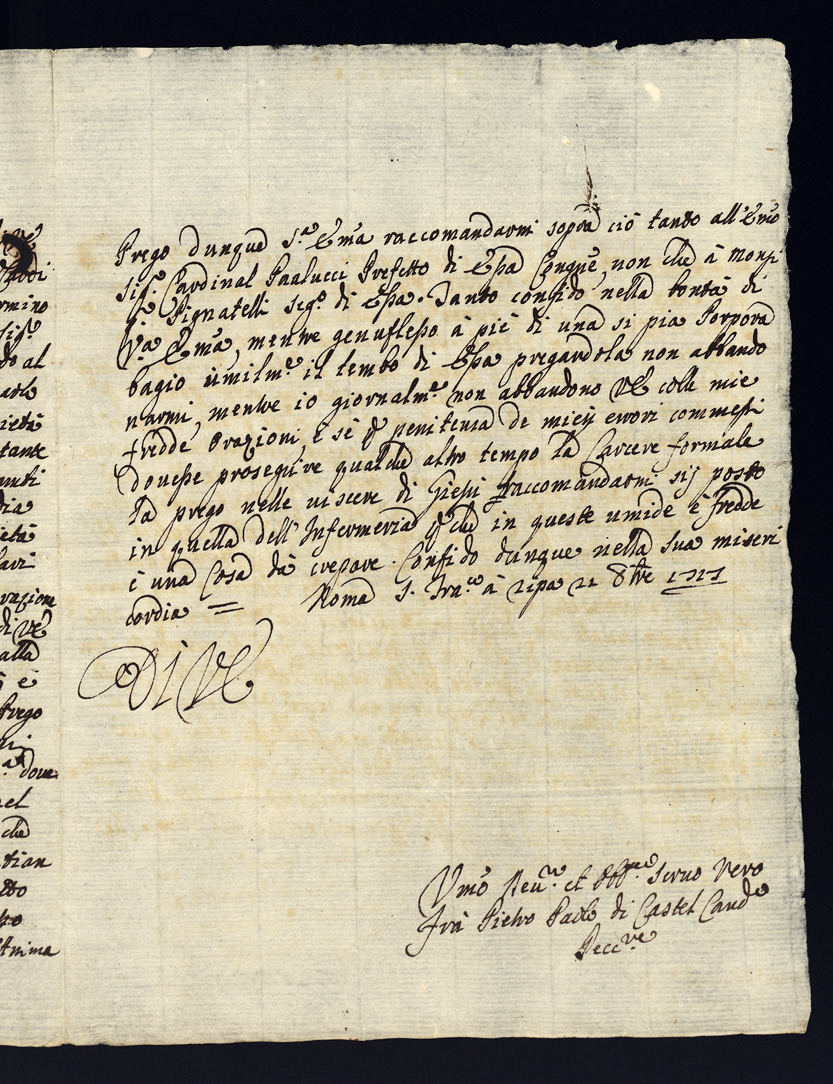 Prego dunque S.ª Em̃a raccomandarmi soprà ciò tanto all'Em̃o
Sig.r Cardinal Paalucci Prefetto di Essa Congne, non che à Monsr
Pignatelli Seg.º di Essa. Tanto confido nella bontà di
V.ª Em̃a, mentre genuflesso à piè di una si pia Porpora
bagio úmilm.e il lembo di Essa pregandola non abbando
narmi, mentre io giornalm.e non abbandono VE colle mie
fredde orazioni, è sè p penitenza de mieij errori commessi
dovesse proseguire qualche altro tempo la Carcere formale
la prego nelle viscere di Giesù raccomandarmi sij posto
in quella dell'Infermeria p che in queste umide è fredde
è una Cosa dà crepare. Confido dunque nella sua miseri
cordia = Roma S. Fran.co à ripa 21 8bre 1727
DI VE
Vmo Deu.mo et Obb.mo Seruo Vero
Frà Pietro Paolo di Castel Cando
Pecc.re
rmino
sig.r
do al
ietà
tante
dia
ietà
razione
di VE
alla
è
Prego
doue
el
che
tian
tto
Anima